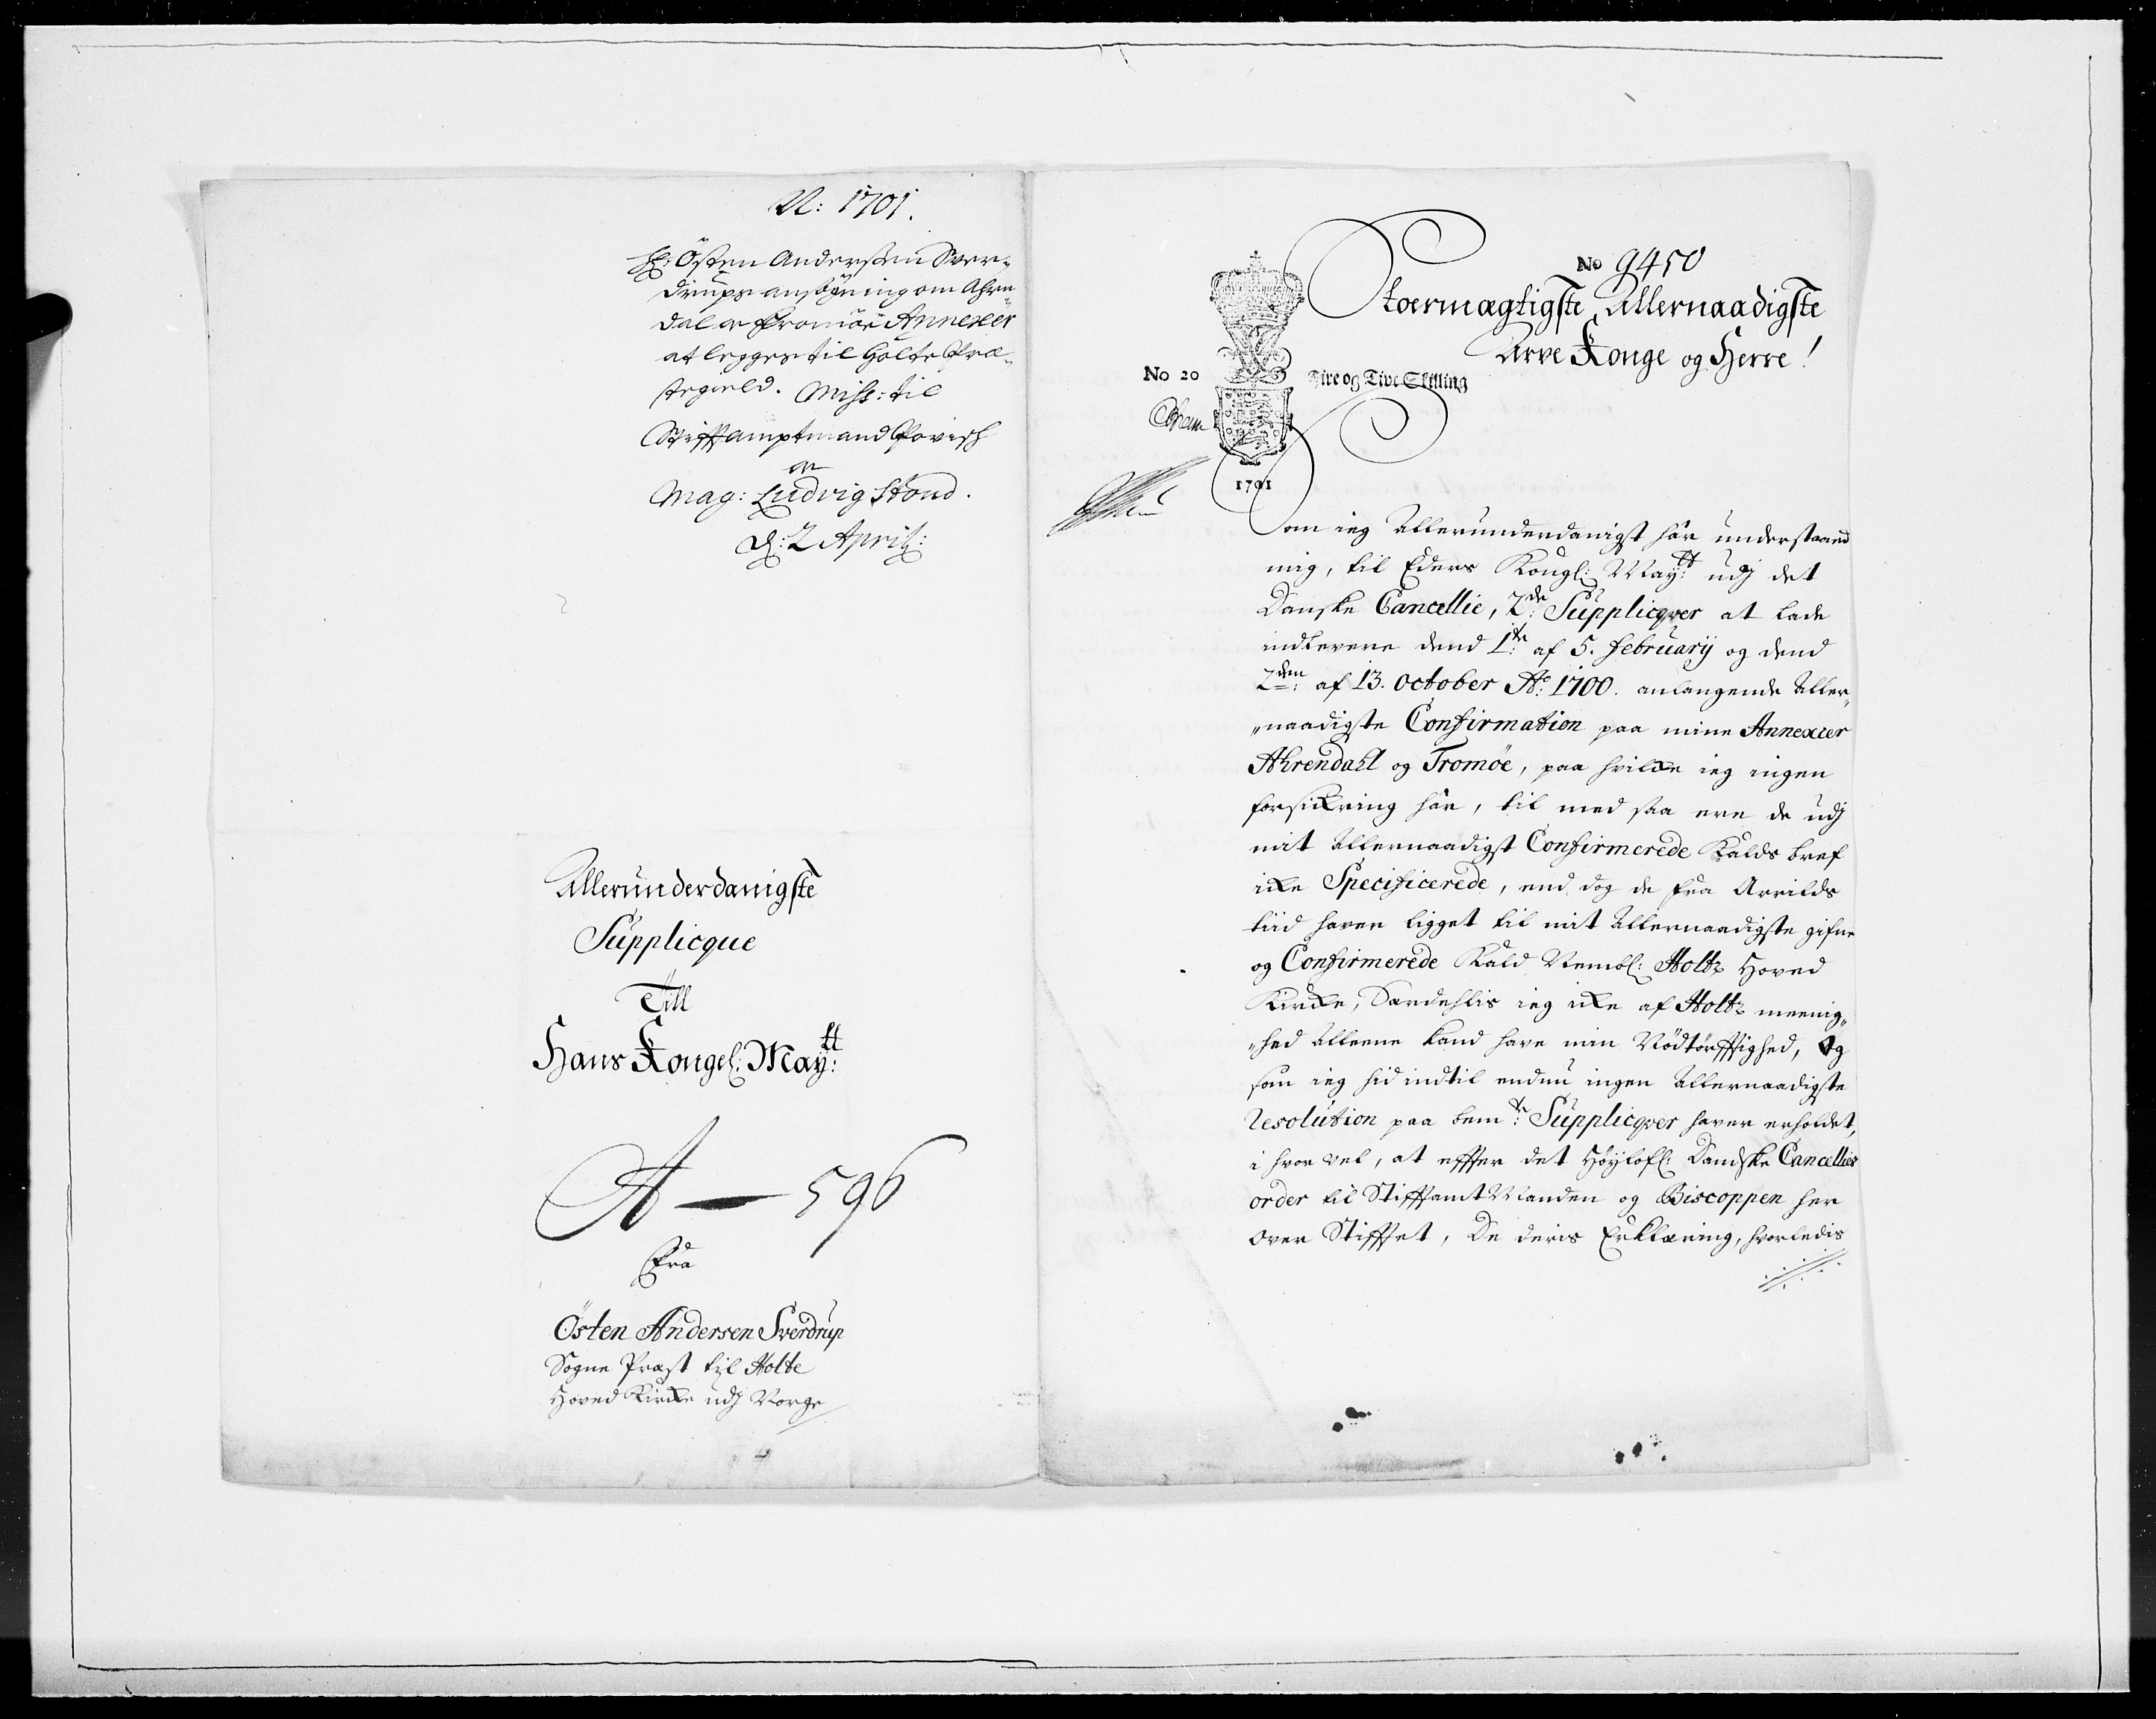 N: 1701.
Hr: Östen Anderssen Sver-
drups ansögning om Ahren
dal oc Tromöe Annexer
at legges til Holte Præ-
stegield. Miss: til
Stifftamptmand Povisch
oc
Mag: Ludvig Stoud.
d: 2 April:
Allerunderdanigste
Supplicque
Till
Hans Kongel: Maytt:
A — 596
Fra
Östen Andersen Sverdrup
Sogne Præst til Holte
Hoved Kircke udj Norge
No 9450
Stoermægtigste, Allernaadigste
Arve Konge og Herre!
No 20
Fire og Tive Skilling
1701
Som ieg Allerunderdanigst har understaaed
mig, til Eders Kongl: Maytt: udj det
Danske Cancellie, 2de: Supplicqver at lade
indlevere dend 1te: af 5. February og dend
2den: af 13. October Ao: 1700. anlangende Aller„
„naadigste Confirmation paa mine Annexier
Ahrendahl og Tromöe, paa hvilcke ieg ingen
forsickring har, til med saa ere de udj
mit Allernaadigst Confirmerede Kalds bref
icke Specificerede, end dog de fra Arrilds
tiid haver ligget til mit Allernaadigste gifne
og Confirmerede Kald Nembl: Holte Hoved
Kircke, Særdehlis ieg icke af Holte meenig„
„hed Alleene kand have min Nödtörfftighed, Og
som ieg hid indtil endnu ingen Allernaadigste
Resolution paa bemte: Supplicqver haver erholdet,
i hvor vel, at effter det Höylofl: Dandske Cancellies
order til StifftamtManden og Biscoppen her
over Stifftet, De deris Erklæring, hvorledis